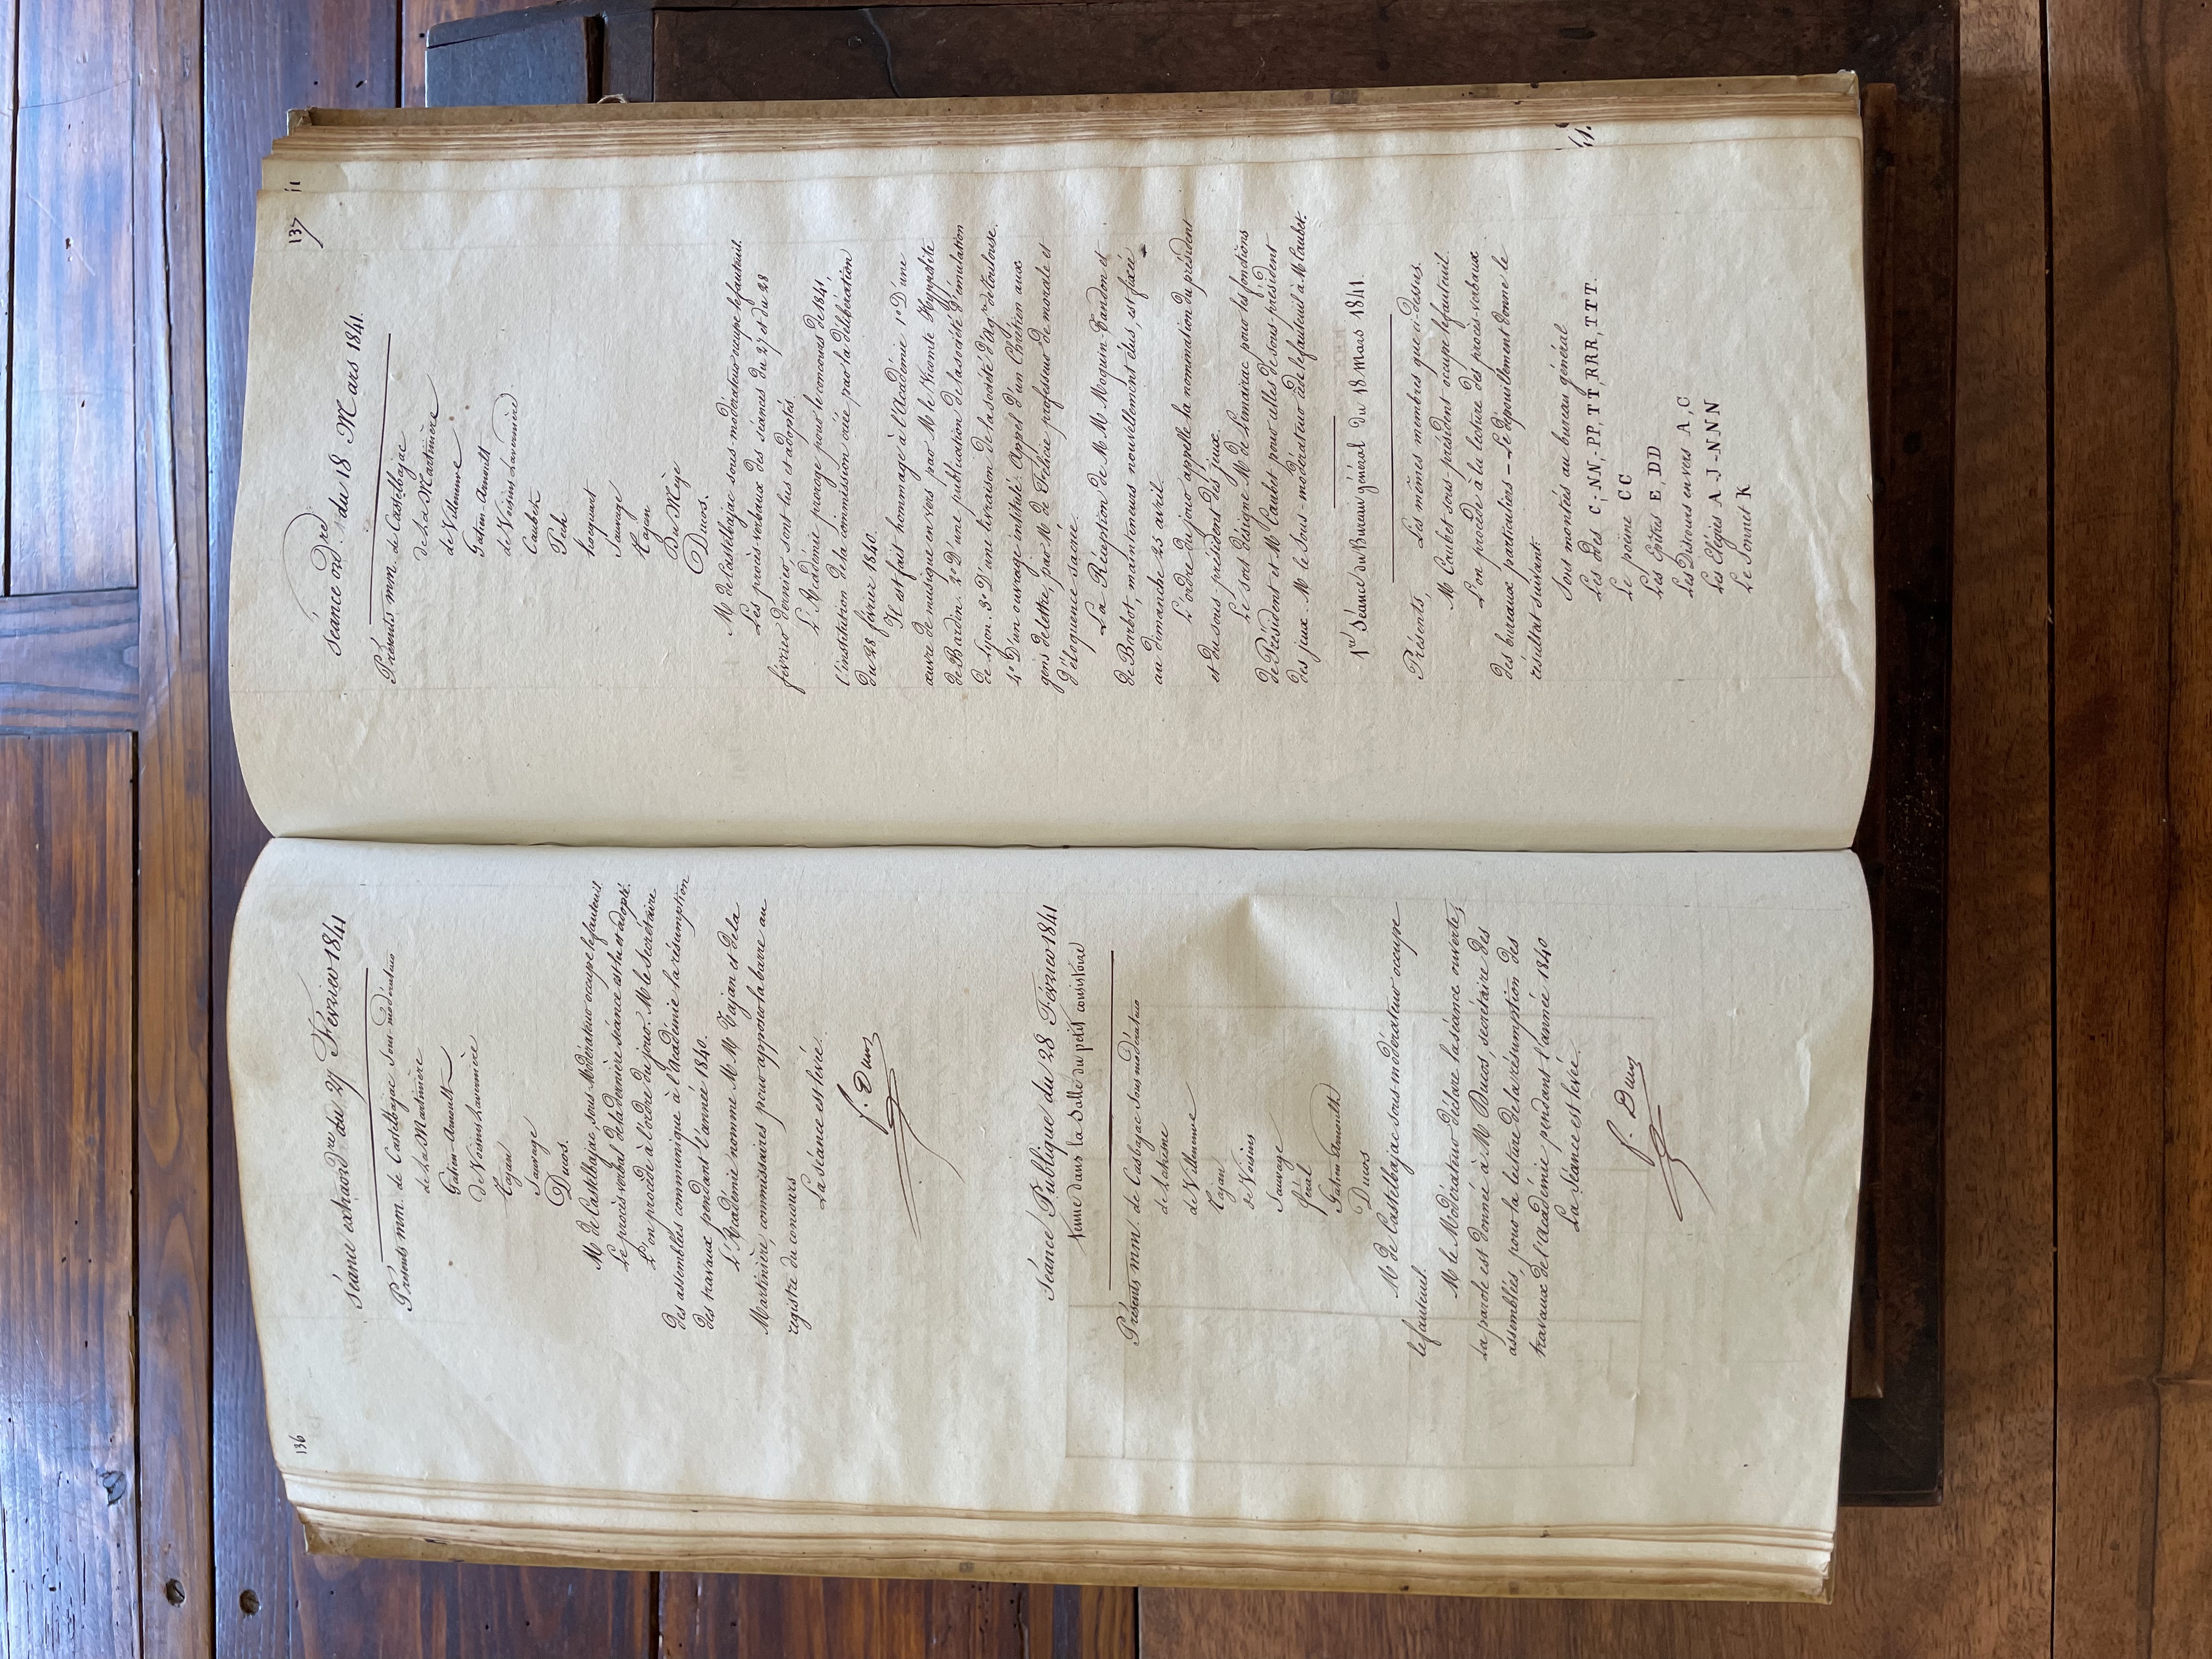 136
Séance extraord^re du 27 Février 1841
Présents mm. de Castelbajac sous-modérateur
de La Martinière
Gatien-Arnoult
de Voisins Lavernière
Tajan
Sauvage
Ducos.
M^r de Castelbajac, sous-Modérateur occupe le fauteuil.
Le procès verbal de la dernière séance est lu et adopté.
L'on procède à l'ordre du jour. M^r le secrétaire
des assemblées communique à l'académie la résumption
des travaux pendant l'année 1840.
L'Académie nomme M M Tajan et de la
Martinière, commissaires pour apposer la barre au
registre du concours
La séance est levée.
f. Ducos
Séance Publique du 28 Février 1841
tenue dans la Salle du petit consistoire
Présents mm. de Casbajac Sous modérateur
de Lahène
de Villeneuve
Tajan
de Voisins
Sauvage
féral
Gatien-Arnoult
Ducos
M^r de Castelbajac sous-modérateur occupe
le fauteuil.
M^r le Modérateur déclare la séance ouverte,
la parole est donnée à M^r Ducos, secrétaire des
assemblées, pour la lecture de la résumption des
travaux de l'académie pendant l'année 1840
La séance est levée.
f. Ducos
137
Séance ord^re du 18 Mars 1841.
Présents mm. de Castelbajac
de La Martinière
de Villeneuve
Gatien-Arnoult
de Voisins Lavernière
Caubet
Pech
hocquart
Sauvage
Tajan
Du Mège
Ducos.
M^r de Castelbajac sous-modérateur occupe le fauteuil.
Les procès-verbaux des séances du 27 et du 28
février dernier, sont lus et adoptés.
L'Académie proroge pour le concours de 1841,
l'institution de la commission créée par la délibération
du 28 février 1840.
Il est fait hommage à l'Académie 1° D'une
œuvre de musique en vers par M^r le Vicomte Hyppolite
de Bardin. 2° D'une publication de la société d'émulation
de Lyon. 3° D'une livraison de la société d'Ag^re de toulouse.
4° D'un ouvrage intitulé: Appel d'un Chrétien aux
gens de lettre, par M^r de Félicie professeur de morale et
d'éloquence sacrée.
La Réception de M M Moquin-Tandon et
de Barbot, mainteneurs nouvellement élus, est fixée
au dimanche 25 avril.
L'ordre du jour appelle la nomination du président
et du sous président des jeux.
Le sort désigne M^r de Limairac pour les fonctions
de Président et M^r Caubet pour celles de sous-président
des jeux. M^r le Sous-modérateur cède le fauteuil à M^r Caubet.
1^re Séance du Bureau général du 18 Mars 1841.
Présents, Les mêmes membres que ci-dessus.
M^r Caubet sous-président occupe le fauteuil.
L'on procède à la lecture des procès-verbaux
des bureaux particuliers – Le dépouillement donne le
résultat suivant:
Sont montées au bureau général
Les Odes C,-NN,-PP,TTT,RRR,TTT.
Le poëme CC
Les Epîtres E, DD
Les Discours en vers A, C
Les Elégies A J-NNN
Le Sonnet K